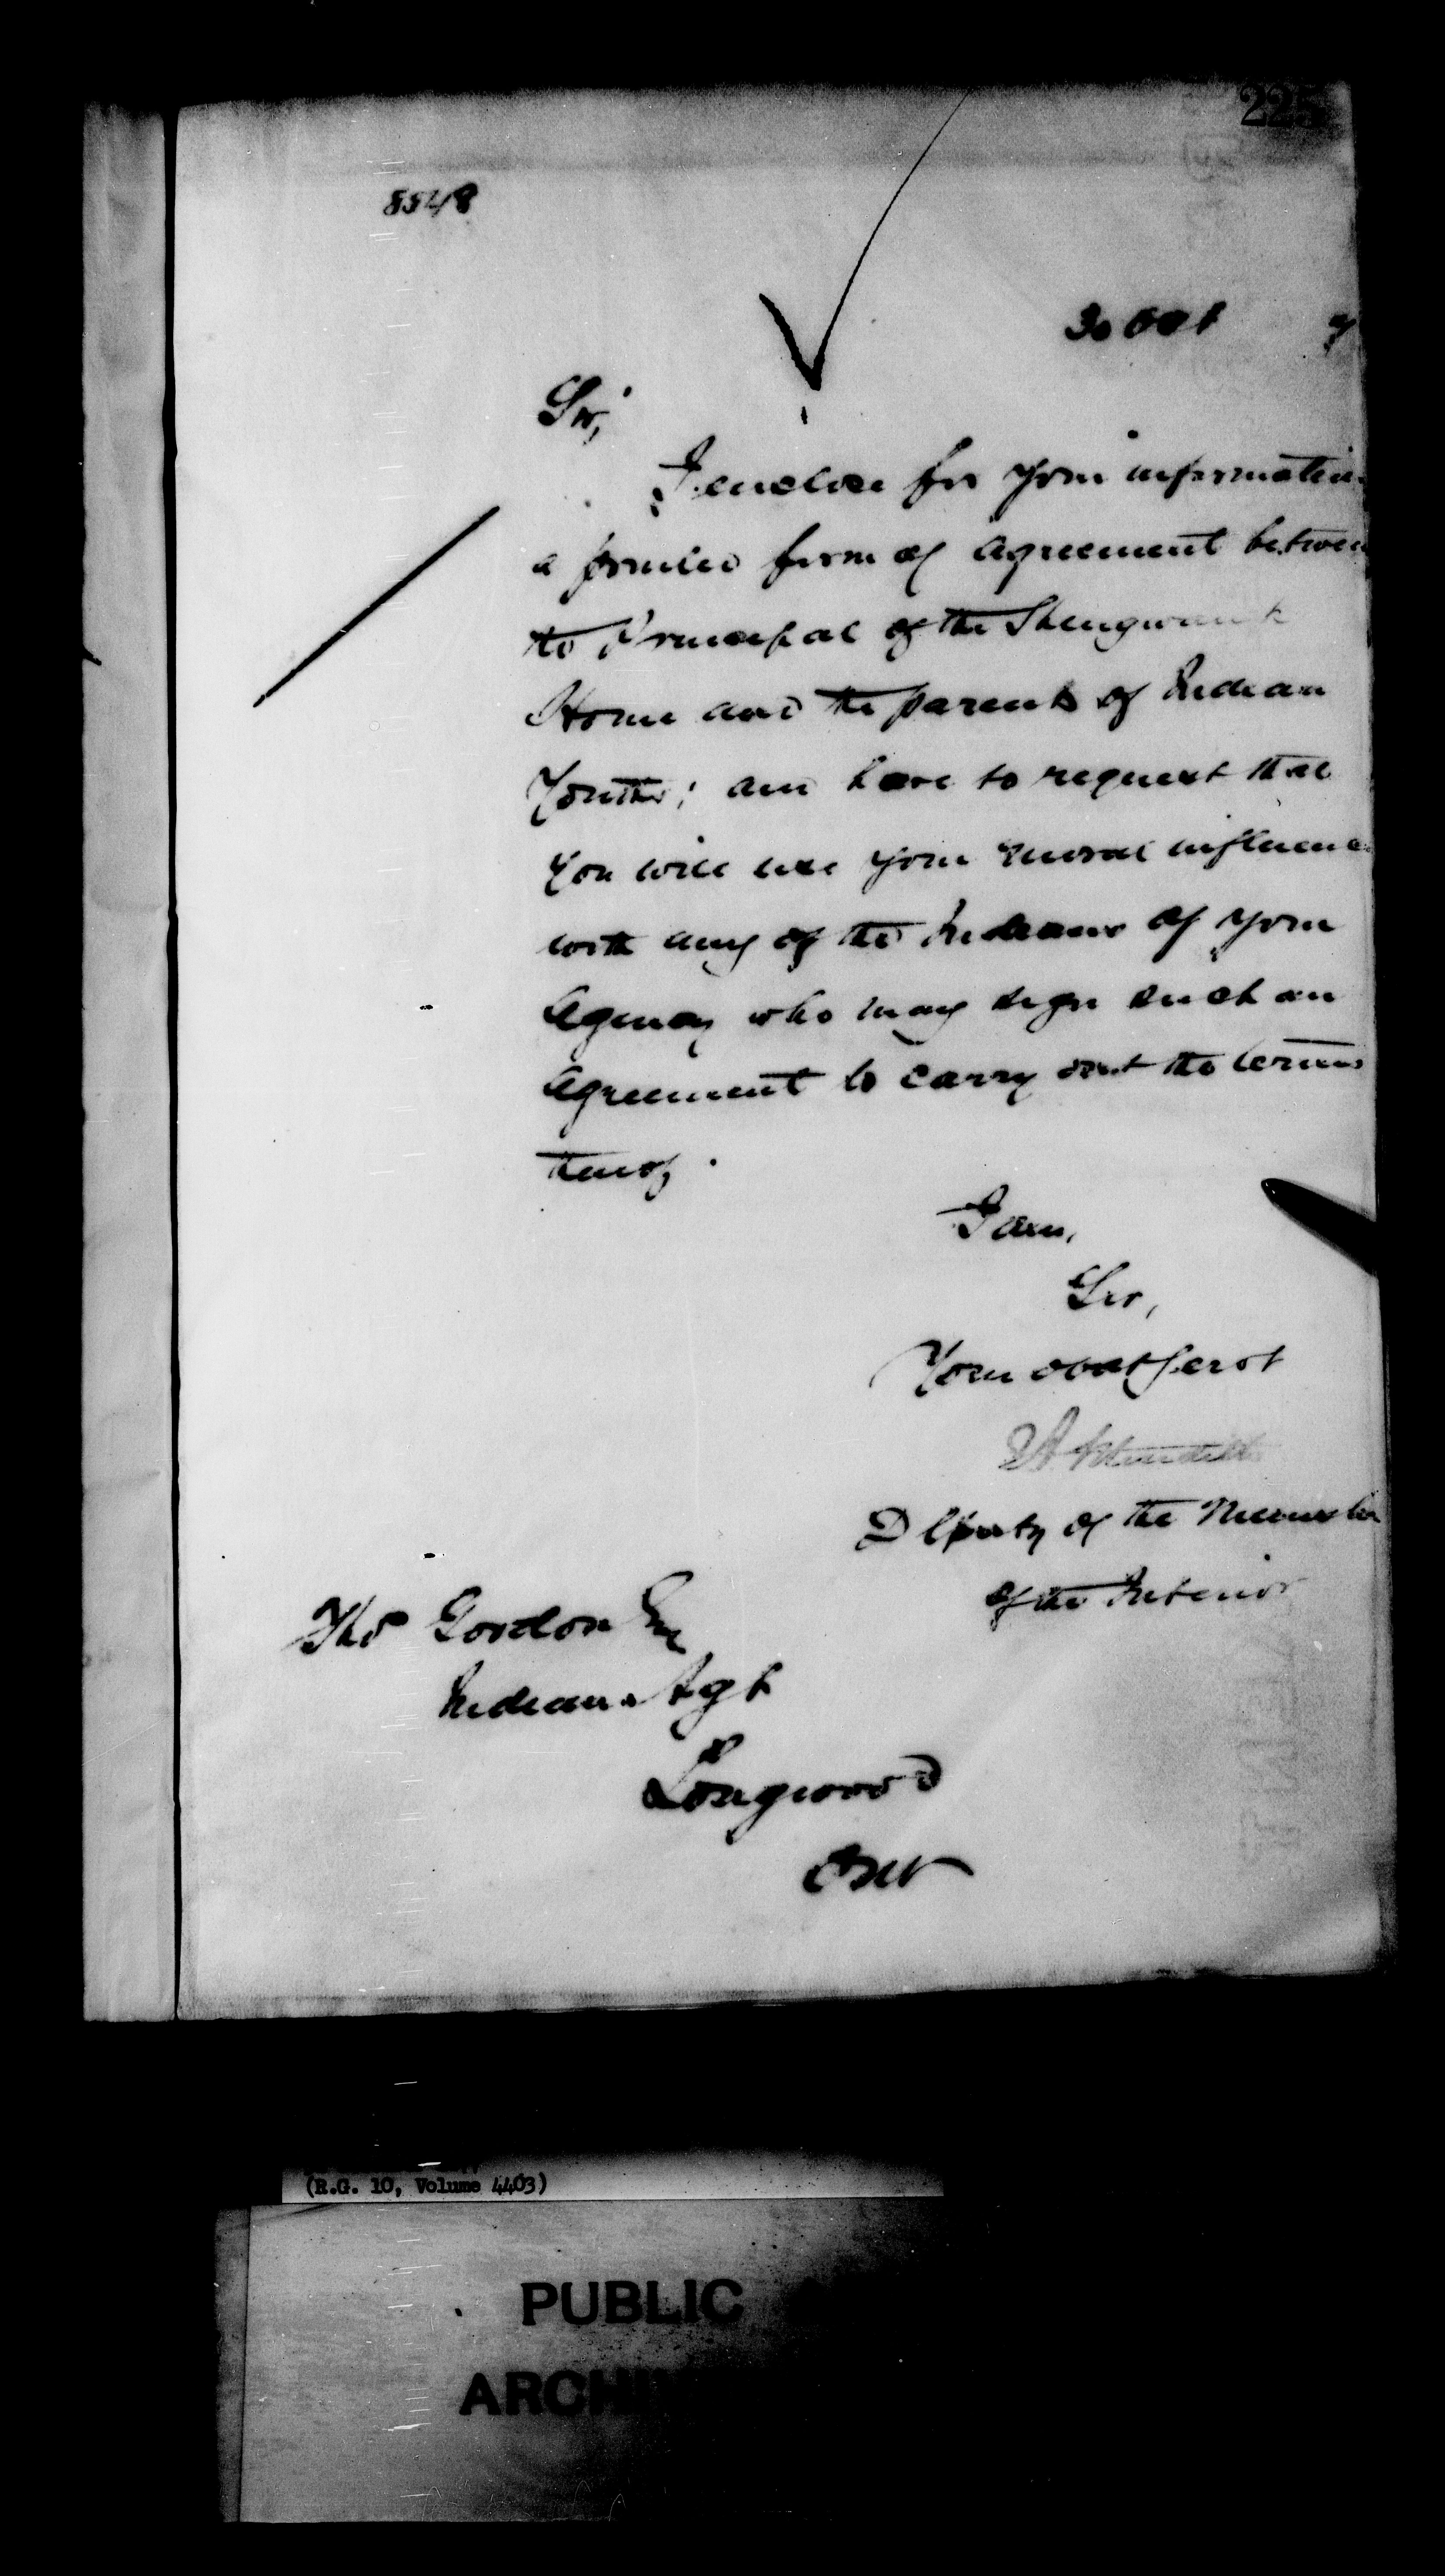 225
8548
30 Oct 7
Sir,
I enclose for your information
a printed form of agreement between
the Principal of the Shingwauk
Home and the parents of Indian
Youths; and have to request that
you will use your moral influence
with any of the Indians of your
Agency who may sign such an
agreement to carry out the terms
thereof.
I am,
Sir,
Your obedt Servt
Deputy of the Minister
of the Interior
Thos Gordon Esq
Indian Agt
Longwood
Ont
(R.G. 10, Volume 4403)
PUBLIC
ARCHI